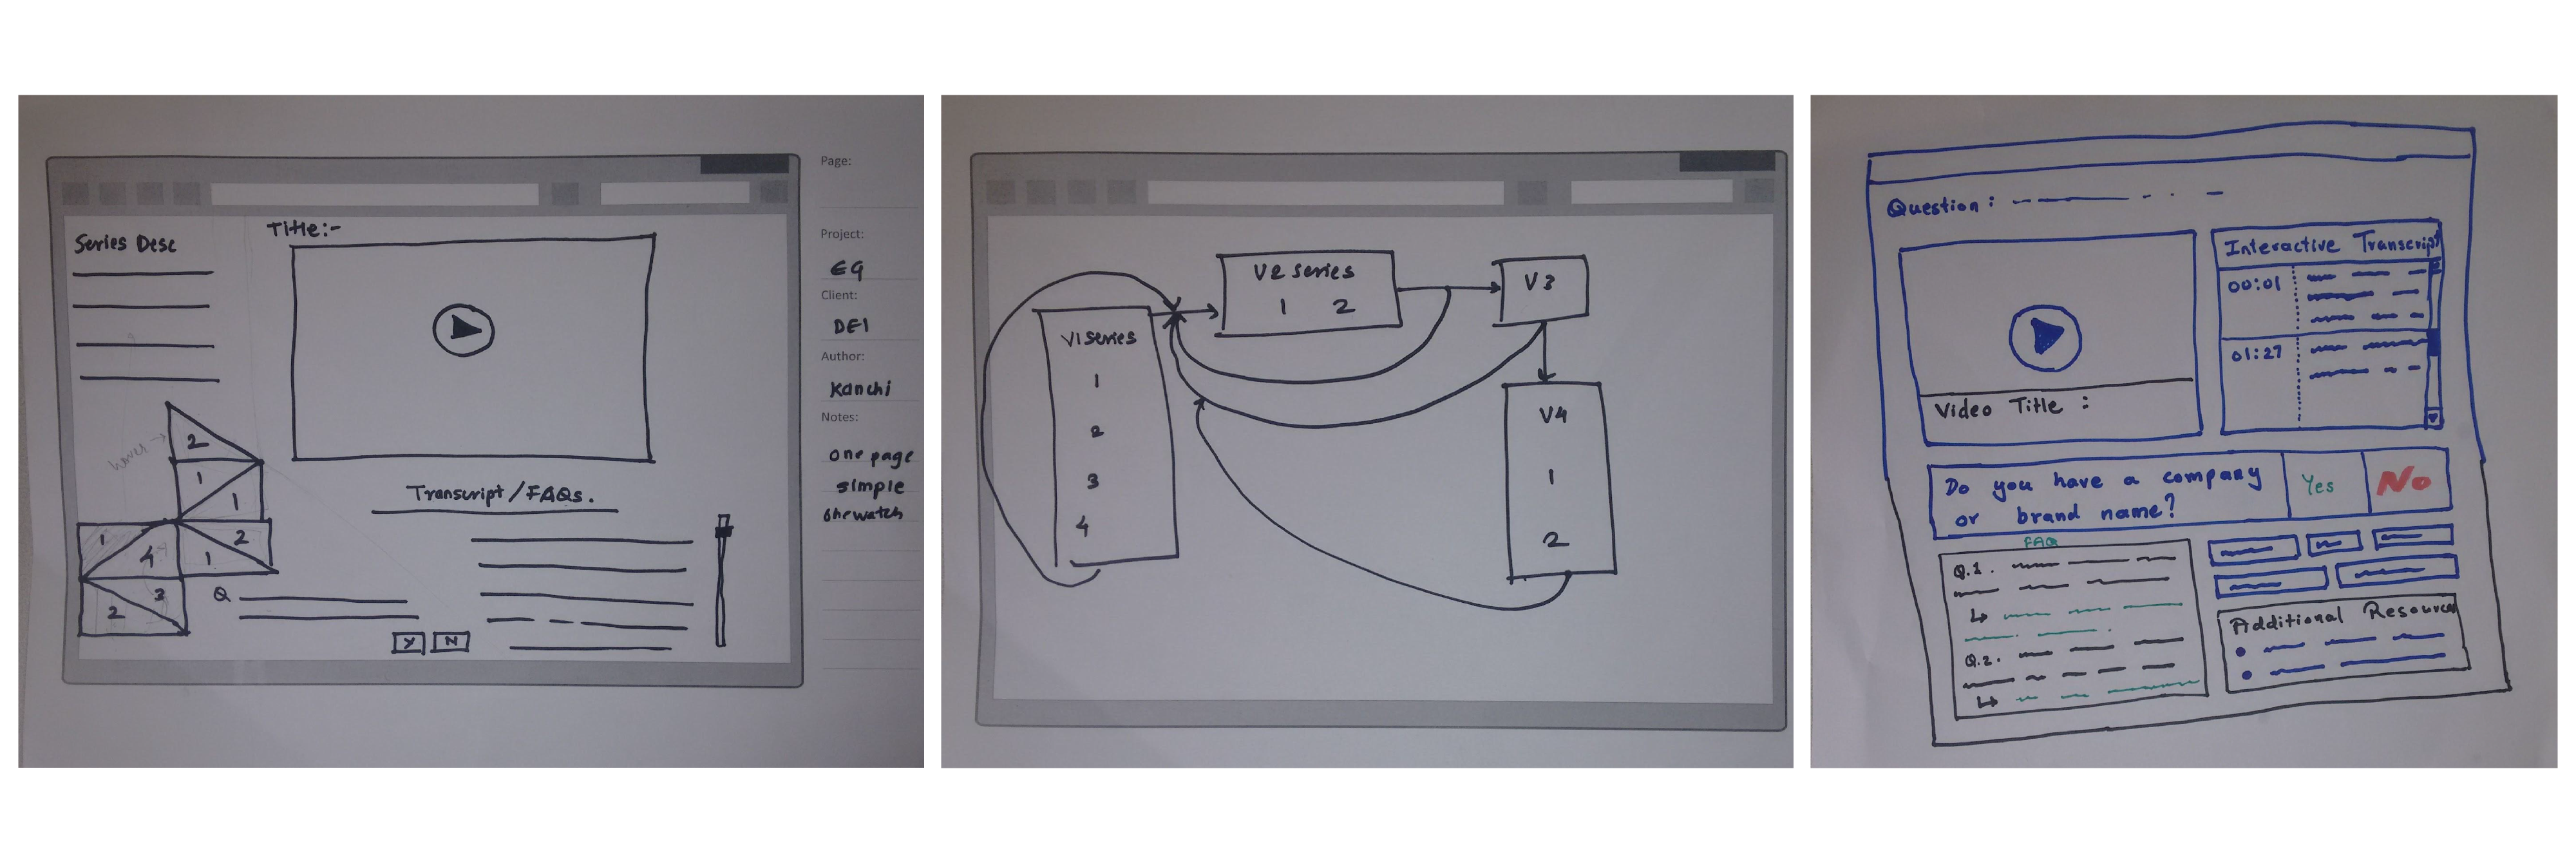 Page:
Project:
EG
Client:
DEI
Author:
Kanchi
Notes:
one page
simple
one watch
Title:-
Series Desc
hover
2
1
1
1
4
2
1
3
2
Q
Y
N
Transcript/FAQs.
V1 series
1
2
3
4
V2 series
1 2
V3
V4
1
2
Question :
Interactive Transcript
00:01
01:27
Video Title :
Do you have a company
or brand name?
Yes
No
FAQ
Q.1.
Q.2.
Additional Resources